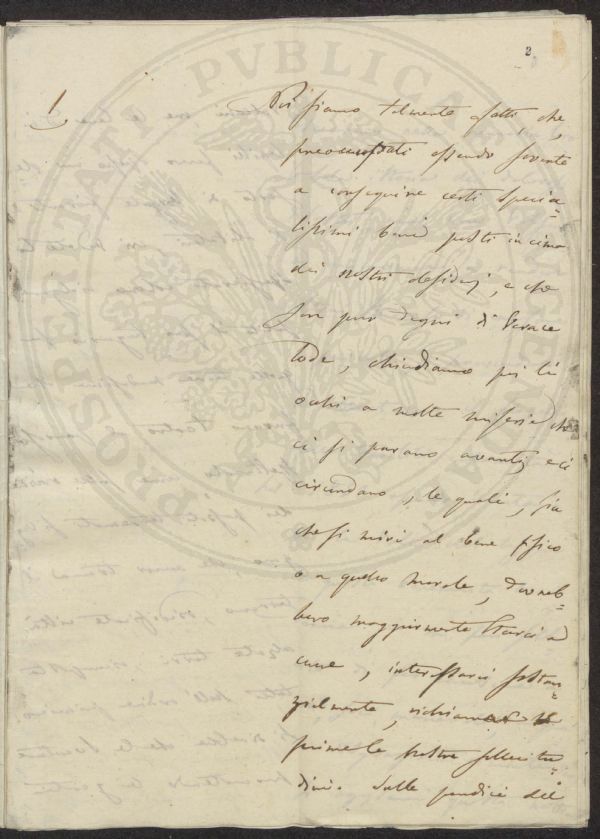 2
1
Noi siamo talmente fatti, che,
preoccupati essendo sovente
a conseguire certi specia=
lissimi beni posti in cima
dei nostri desiderj, e che
son pur degni di verace
lode, chiudiamo poi li
occhi a molte miserie che
ci si parano avanti, e ci
circondano, le quali, sia
che si miri al bene fisico
o a quello morale, dovreb=
bero maggiormente starci a
cuore, interessarci sostan=
zialmente, richiamare
prime le nostre sollecitu=
dini. Sulle pendici del
PROSPERITATI PUBLICAE